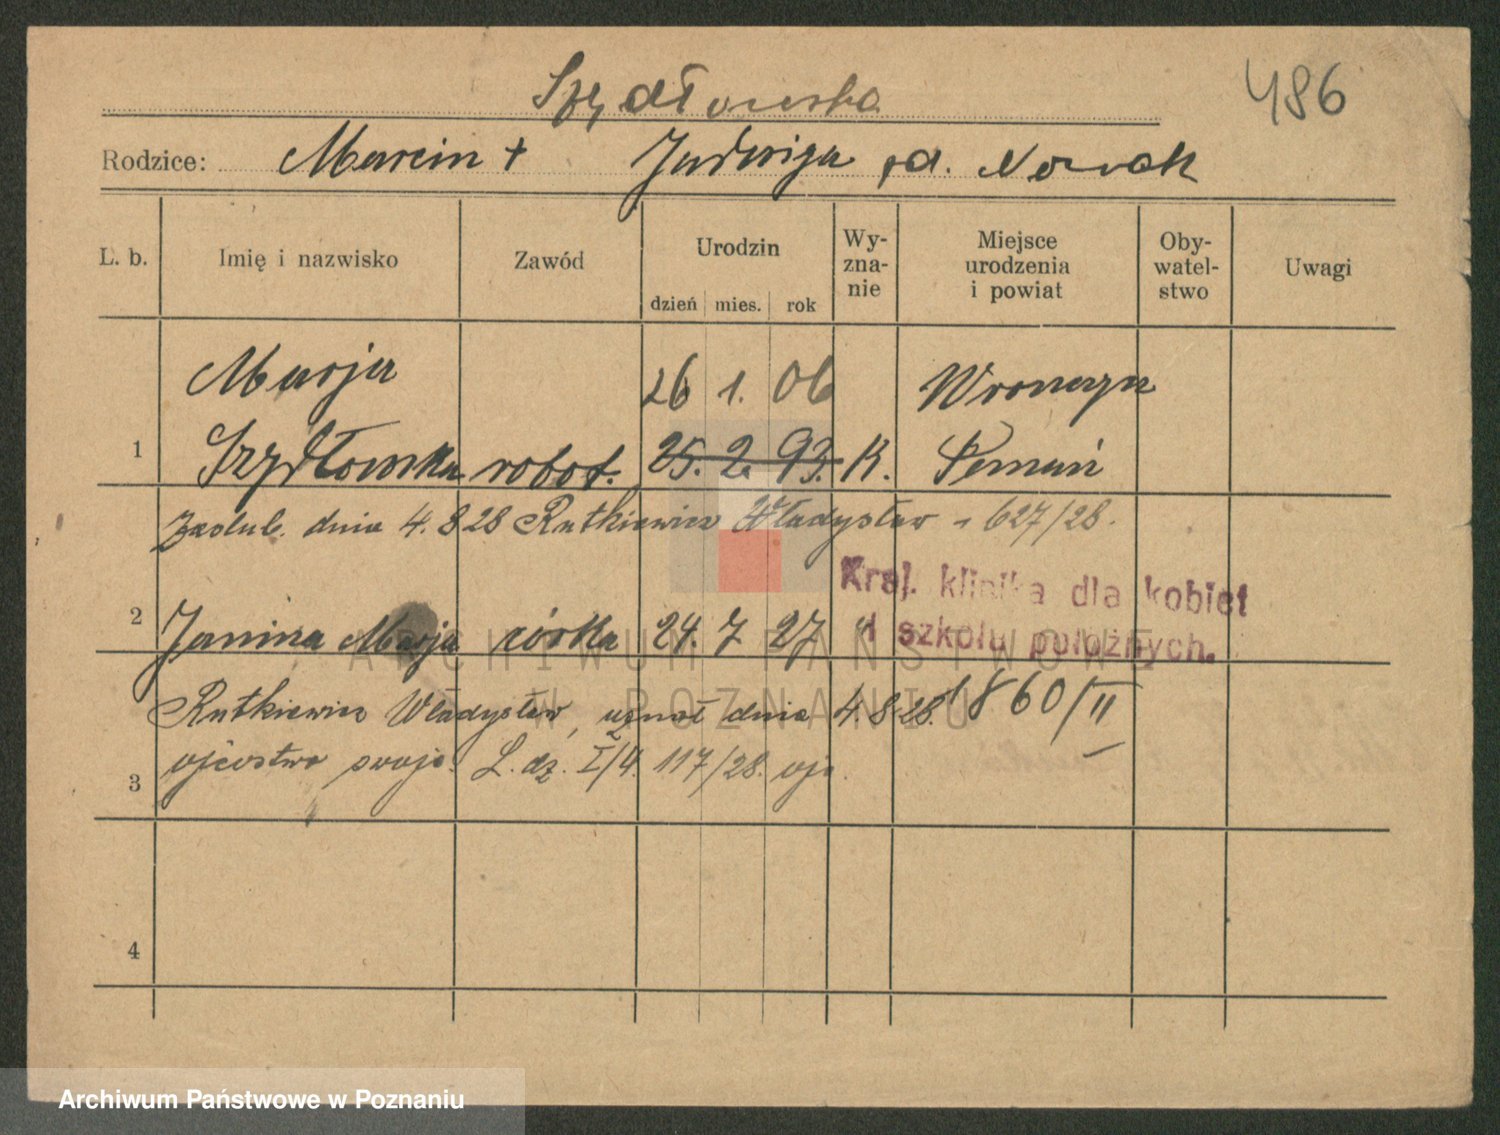 Szydłowska 486
Rodzice: Marcin + Jadwiga rd. Nowak
L. b. Imię i nazwisko Zawód Urodzin Wy-zna-nie Miejsce urodzenia i powiat Oby-watel-stwo Uwagi
dzień mies. rok
Marja 26 1. 06 Wronczyn
1 Szydłowska robot. 25. 2. 93. K. Poznań
Zaślub. dnia 4.8 28 Rutkiewicz Władysław - 627/28.
Kraj. klinika dla kobiet
2 Janina Marja córka 24. 7 27 "
i szkoła położnych.
Rutkiewicz Władysław, uznał dnia 4.8 28. 1860/II
3 ojcostwo swoje. L. dz. I/4. 117/28. ojc.
4
ARCHIWUM PAŃSTWOWE
W POZNANIU
Archiwum Państwowe w Poznaniu